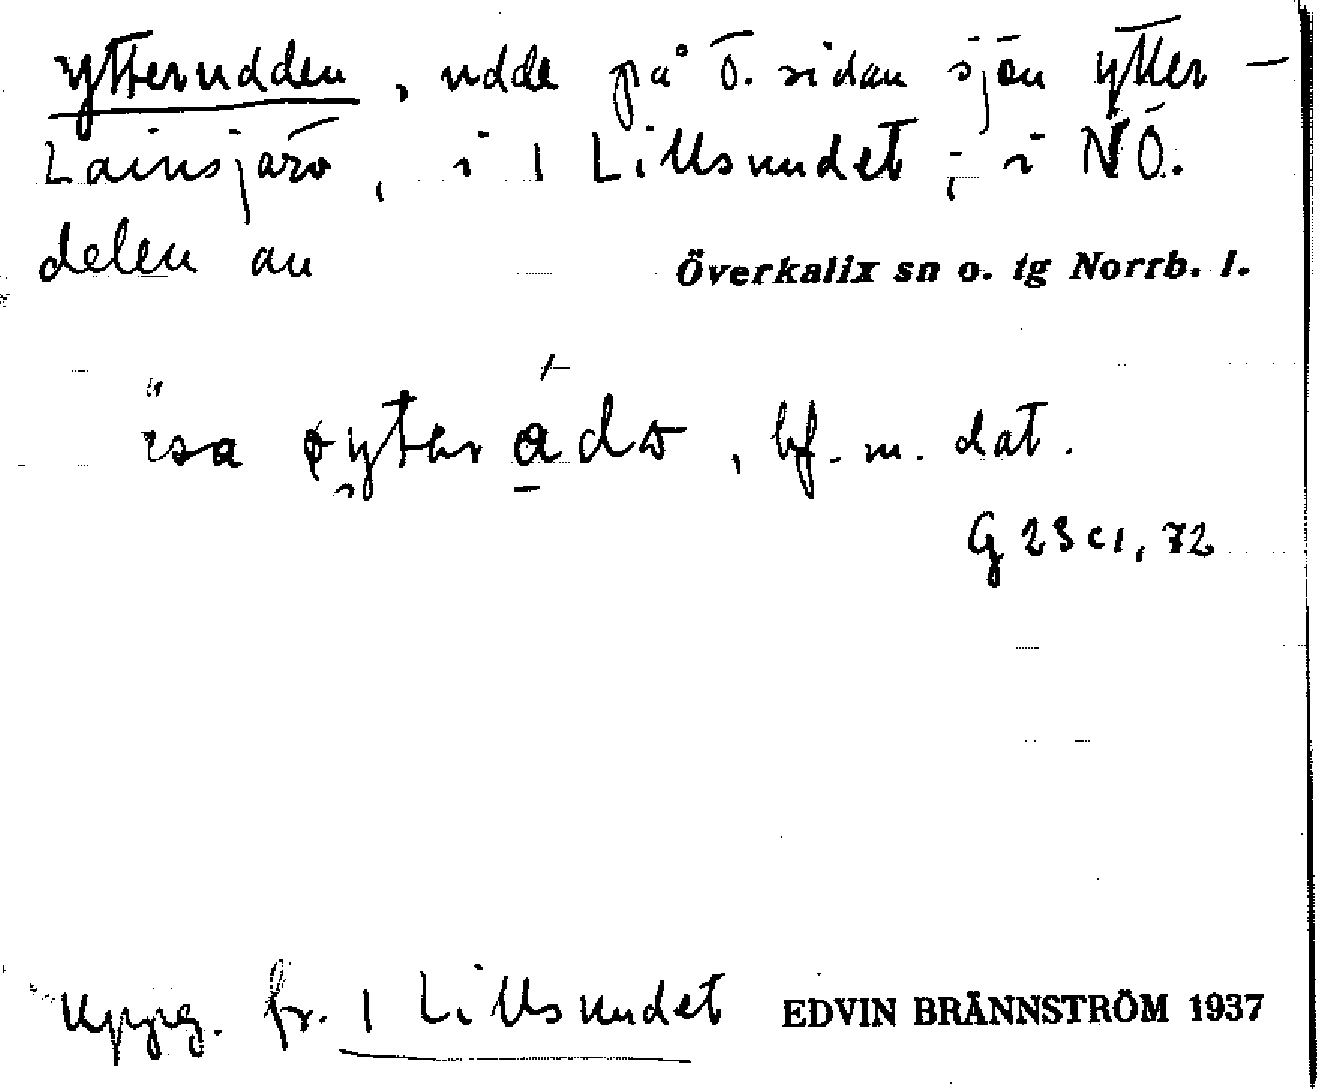 Ytterudden, udde på ö. sidan sjön Ytter-
Lainsjärv, i 1 Lillsundet; i NÖ.
delen av
Överkalix sn o. tg Norrb. l.
bf. m. dat.
G 23 c1, 72
Uppg. fr. 1 Lillsundet EDVIN BRÄNNSTRÖM 1937